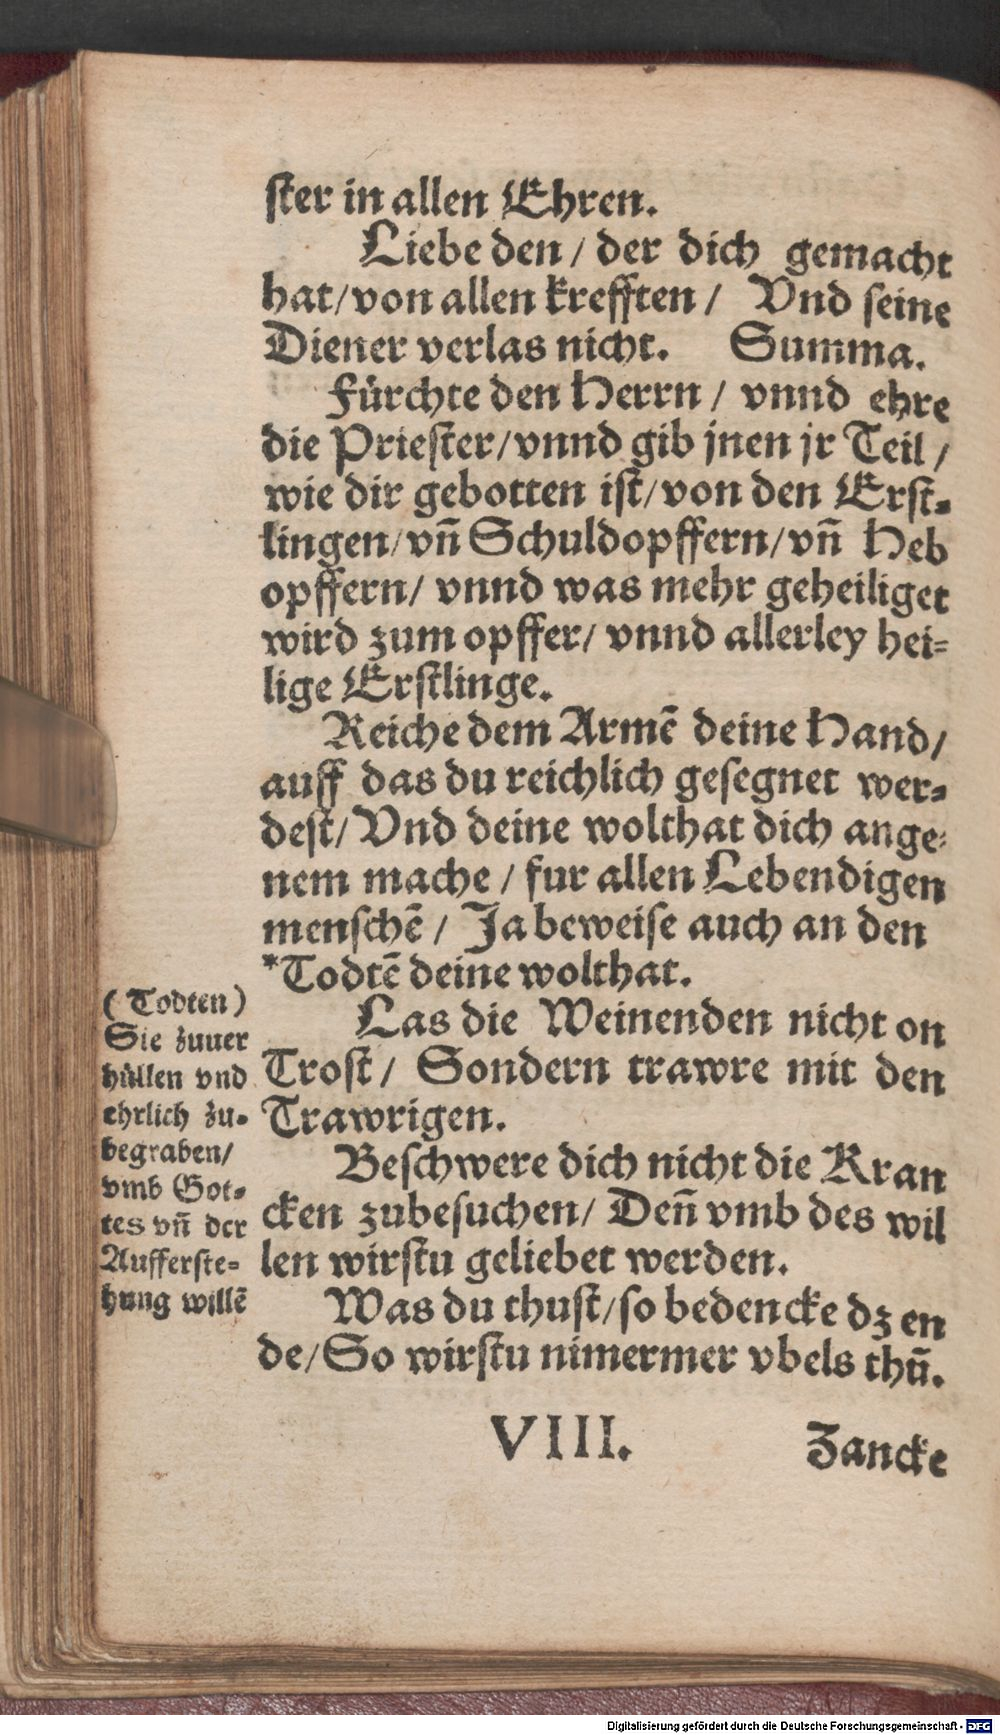 ster in allen Ehren.
Liebe den / der dich gemacht
hat/von allen krefften / Vnd seine
Diener verlas nicht. Summa.
Fürchte den Herrn / vnnd ehre
die Priester/vnnd gib jnen jr Teil /
wie dir gebotten ist/von den Erst-
lingen/vn̄ Schuldopffern/vn̄ Heb
opffern/ vnnd was mehr geheiliget
wird zum opffer/ vnnd allerley hei-
lige Erstlinge.
Reiche dem Armē deine Hand/
auff das du reichlich gesegnet wer-
dest/Vnd deine wolthat dich ange-
nem mache / fur allen Lebendigen
menschē / Ja beweise auch an den
*Todtē deine wolthat.
Las die Weinenden nicht on
Trost/ Sondern trawre mit den
Trawrigen.
Beschwere dich nicht die Kran
cken zubesuchen/ Den̄ vmb des wil
len wirstu geliebet werden.
Was du thust/so bedencke dz en
de/So wirstu nimermer vbels thū.
(Todten)
Sie zuuer
hüllen vnd
ehrlich zu-
begraben/
vmb Got-
tes vn̄ der
Aufferste-
hung willē
VIII. Zancke
Digitalisierung gefördert durch die Deutsche Forschungsgemeinschaft - DFG